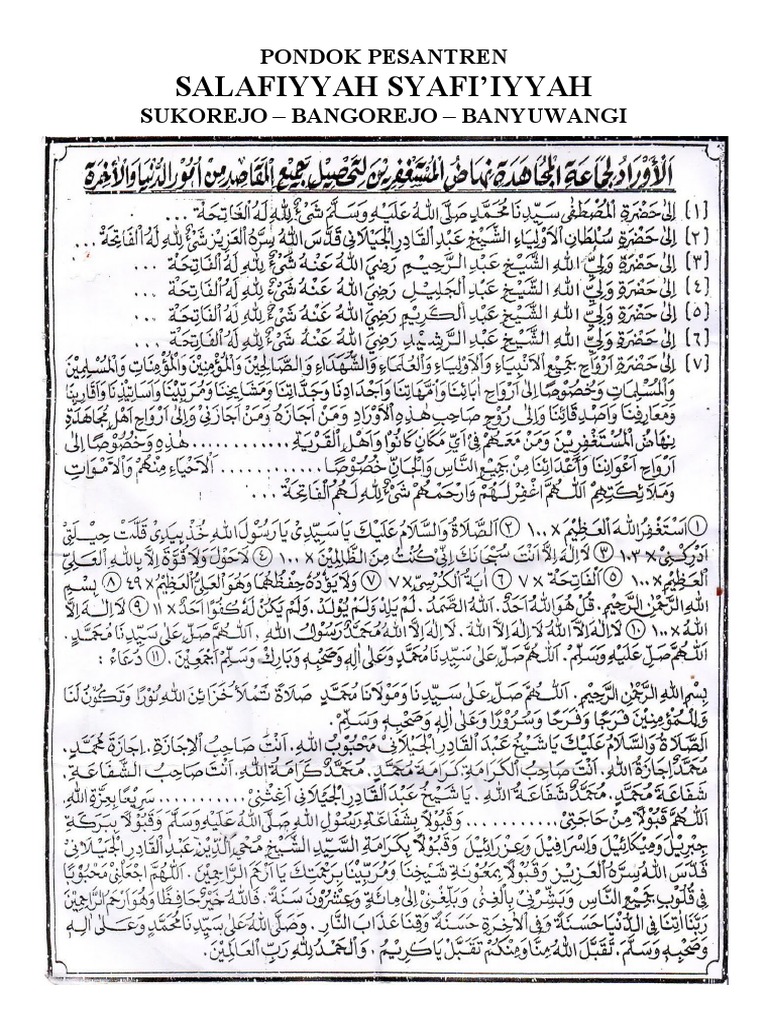 PONDOK PESANTREN
SALAFIYYAH SYAFI'IYYAH
SUKOREJO – BANGOREJO – BANYUWANGI
الأَوْرَادُ لِجَمَاعَةِ الْمُجَاهَدَةِ نِهَاضُ الْمُسْتَغْفِرِيْنَ لِتَحْصِيْلِ جَمِيْعِ الْمَقَاصِدِ مِنْ أُمُوْرِ الدُّنْيَا وَالْأٰخِرَةِ
[١] اِلَى حَضْرَةِ الْمُصْطَفَى سَيِّدِنَا مُحَمَّدٍ صَلَّى اللهُ عَلَيْهِ وَسَلَّمَ شَيْءٌ لِلّٰهِ لَهُ الْفَاتِحَةُ ...
[٢] اِلَى حَضْرَةِ سُلْطَانِ الْاَوْلِيَاءِ الشَّيْخِ عَبْدِ الْقَادِرِ الْجَيْلَانِي قَدَّسَ اللهُ سِرَّهُ الْعَزِيْزَ شَيْءٌ لِلّٰهِ لَهُ الْفَاتِحَةُ ...
[٣] اِلَى حَضْرَةِ وَلِيِّ اللهِ الشَّيْخِ عَبْدِ الرَّحِيْمِ رَضِيَ اللهُ عَنْهُ شَيْءٌ لِلّٰهِ لَهُ الْفَاتِحَةُ ...
[٤] اِلَى حَضْرَةِ وَلِيِّ اللهِ الشَّيْخِ عَبْدِ الْجَلِيْلِ رَضِيَ اللهُ عَنْهُ شَيْءٌ لِلّٰهِ لَهُ الْفَاتِحَةُ ...
[٥] اِلَى حَضْرَةِ وَلِيِّ اللهِ الشَّيْخِ عَبْدِ الْكَرِيْمِ رَضِيَ اللهُ عَنْهُ شَيْءٌ لِلّٰهِ لَهُ الْفَاتِحَةُ ...
[٦] اِلَى حَضْرَةِ وَلِيِّ اللهِ الشَّيْخِ عَبْدِ الرَّشِيْدِ رَضِيَ اللهُ عَنْهُ شَيْءٌ لِلّٰهِ لَهُ الْفَاتِحَةُ ...
[٧] اِلَى حَضْرَةِ اَرْوَاحِ جَمِيْعِ الْاَنْبِيَاءِ وَالْاَوْلِيَاءِ وَالْعُلَمَاءِ وَالشُّهَدَاءِ وَالصَّالِحِيْنَ وَالْمُؤْمِنِيْنَ وَالْمُؤْمِنَاتِ وَالْمُسْلِمِيْنَ
وَالْمُسْلِمَاتِ وَخُصُوْصًا اِلَى اَرْوَاحِ اٰبَائِنَا وَاُمَّهَاتِنَا وَاَجْدَادِنَا وَجَدَّاتِنَا وَمَشَايِخِنَا وَمُرَبِّيْنَا وَاَسَاتِيْذِنَا وَاَقَارِبِنَا
وَمَعَارِفِنَا وَاَصْدِقَائِنَا وَاِلَى رُوْحِ صَاحِبِ هٰذِهِ الْاَوْرَادِ وَمَنْ اَجَازَهُ وَمَنْ اَجَازَنِي وَاِلَى اَرْوَاحِ اَهْلِ مُجَاهَدَةِ
نِهَاضُ الْمُسْتَغْفِرِيْنَ وَمَنْ مَعَهُمْ فِي اَيِّ مَكَانٍ كَانُوْا وَاَهْلِ الْقَرْيَةِ ............ هٰذِهِ وَخُصُوْصًا اِلَى
اَرْوَاحِ اَعْوَانِنَا وَاَعْدَائِنَا مِنْ جَمِيْعِ النَّاسِ وَالْجَانِّ خُصُوْصًا ............ الْاَحْيَاءِ مِنْهُمْ وَالْاَمْوَاتِ
وَمَلَائِكَتِهِمْ اَللّٰهُمَّ اغْفِرْ لَهُمْ وَارْحَمْهُمْ شَيْءٌ لِلّٰهِ لَهُمُ الْفَاتِحَةُ ...
① اَسْتَغْفِرُ اللهَ الْعَظِيْمَ × ١٠٠ ② اَلصَّلَاةُ وَالسَّلَامُ عَلَيْكَ يَا سَيِّدِيْ يَا رَسُوْلَ اللهِ خُذْ بِيَدِيْ قَلَّتْ حِيْلَتِيْ
اَدْرِكْنِيْ × ١٠٣ ③ لَا اِلٰهَ اِلَّا اَنْتَ سُبْحَانَكَ اِنِّيْ كُنْتُ مِنَ الظَّالِمِيْنَ × ١٠٠ ④ لَا حَوْلَ وَلَا قُوَّةَ اِلَّا بِاللهِ الْعَلِيِّ
الْعَظِيْمِ × ١٠٠ ⑤ اَلْفَاتِحَةُ × ٧ ⑥ اٰيَةُ الْكُرْسِيِّ × ٧ ⑦ وَلَا يَؤُدُهُ حِفْظُهُمَا وَهُوَ الْعَلِيُّ الْعَظِيْمُ × ٤٩ ⑧ بِسْمِ
اللهِ الرَّحْمٰنِ الرَّحِيْمِ. قُلْ هُوَ اللهُ اَحَدٌ. اَللهُ الصَّمَدُ. لَمْ يَلِدْ وَلَمْ يُوْلَدْ. وَلَمْ يَكُنْ لَهُ كُفُوًا اَحَدٌ × ١١ ⑨ لَا اِلٰهَ اِلَّا
اللهُ × ١٠٠ ⑩ لَا اِلٰهَ اِلَّا اللهُ لَا اِلٰهَ اِلَّا اللهُ. لَا اِلٰهَ اِلَّا اللهُ مُحَمَّدٌ رَسُوْلُ اللهِ. اَللّٰهُمَّ صَلِّ عَلَى سَيِّدِنَا مُحَمَّدٍ.
اَللّٰهُمَّ صَلِّ عَلَيْهِ وَسَلِّمْ. اَللّٰهُمَّ صَلِّ عَلَى سَيِّدِنَا مُحَمَّدٍ وَعَلَى اٰلِهِ وَصَحْبِهِ وَبَارِكْ وَسَلِّمْ اَجْمَعِيْنَ. ⑪ دُعَاءْ :
بِسْمِ اللهِ الرَّحْمٰنِ الرَّحِيْمِ. اَللّٰهُمَّ صَلِّ عَلَى سَيِّدِنَا وَمَوْلَانَا مُحَمَّدٍ صَلَاةً تَمْلَأُ خَزَائِنَ اللهِ نُوْرًا وَتَكُوْنُ لَنَا
وَلِلْمُؤْمِنِيْنَ فَرَجًا وَفَرَحًا وَسُرُوْرًا وَعَلَى اٰلِهِ وَصَحْبِهِ وَسَلِّمْ.
اَلصَّلَاةُ وَالسَّلَامُ عَلَيْكَ يَا شَيْخُ عَبْدَ الْقَادِرِ الْجَيْلَانِي مَحْبُوْبُ اللهِ. اَنْتَ صَاحِبُ الْاِجَازَةِ. اِجَازَةُ مُحَمَّدٍ.
مُحَمَّدٌ اِجَازَةُ اللهِ. اَنْتَ صَاحِبُ الْكَرَامَةِ كَرَامَةُ مُحَمَّدٍ. مُحَمَّدٌ كَرَامَةُ اللهِ. اَنْتَ صَاحِبُ الشَّفَاعَةِ.
شَفَاعَةُ مُحَمَّدٍ. مُحَمَّدٌ شَفَاعَةُ اللهِ. يَا شَيْخُ عَبْدَ الْقَادِرِ الْجَيْلَانِي اَغِثْنِيْ ............ سَرِيْعًا بِعِزَّةِ اللهِ.
اَللّٰهُمَّ قَبُوْلًا مِنْ حَاجَتِيْ ............ وَقَبُوْلًا بِشَفَاعَةِ رَسُوْلِ اللهِ صَلَّى اللهُ عَلَيْهِ وَسَلَّمَ وَقَبُوْلًا بِبَرَكَةِ
جِبْرِيْلَ وَمِيْكَائِيْلَ وَاِسْرَافِيْلَ وَعِزْرَائِيْلَ وَقَبُوْلًا بِكَرَامَةِ السَّيِّدِ الشَّيْخِ مُحْيِ الدِّيْنِ عَبْدِ الْقَادِرِ الْجَيْلَانِي
قَدَّسَ اللهُ سِرَّهُ الْعَزِيْزَ وَقَبُوْلًا بِمَعُوْنَةِ شَيْخِنَا وَمُرَبِّيْنَا بِرَحْمَتِكَ يَا اَرْحَمَ الرَّاحِمِيْنَ. اَللّٰهُمَّ اجْعَلْنِيْ مَحْبُوْبًا
فِي قُلُوْبِ جَمِيْعِ النَّاسِ وَبَشِّرْنِيْ بِالْغِنَى وَبَلِّغْنِيْ اِلَى مِائَةٍ وَعِشْرُوْنَ سَنَةً. فَاللهُ خَيْرٌ حَافِظًا وَهُوَ اَرْحَمُ الرَّاحِمِيْنَ
رَبَّنَا اٰتِنَا فِي الدُّنْيَا حَسَنَةً وَفِي الْاٰخِرَةِ حَسَنَةً وَقِنَا عَذَابَ النَّارِ. وَصَلَّى اللهُ عَلَى سَيِّدِنَا مُحَمَّدٍ وَعَلَى اٰلِهِ
وَصَحْبِهِ وَسَلَّمَ. تَقَبَّلَ اللهُ مِنَّا وَمِنْكُمْ تَقَبَّلْ يَا كَرِيْمُ. وَالْحَمْدُ لِلّٰهِ رَبِّ الْعَالَمِيْنَ.